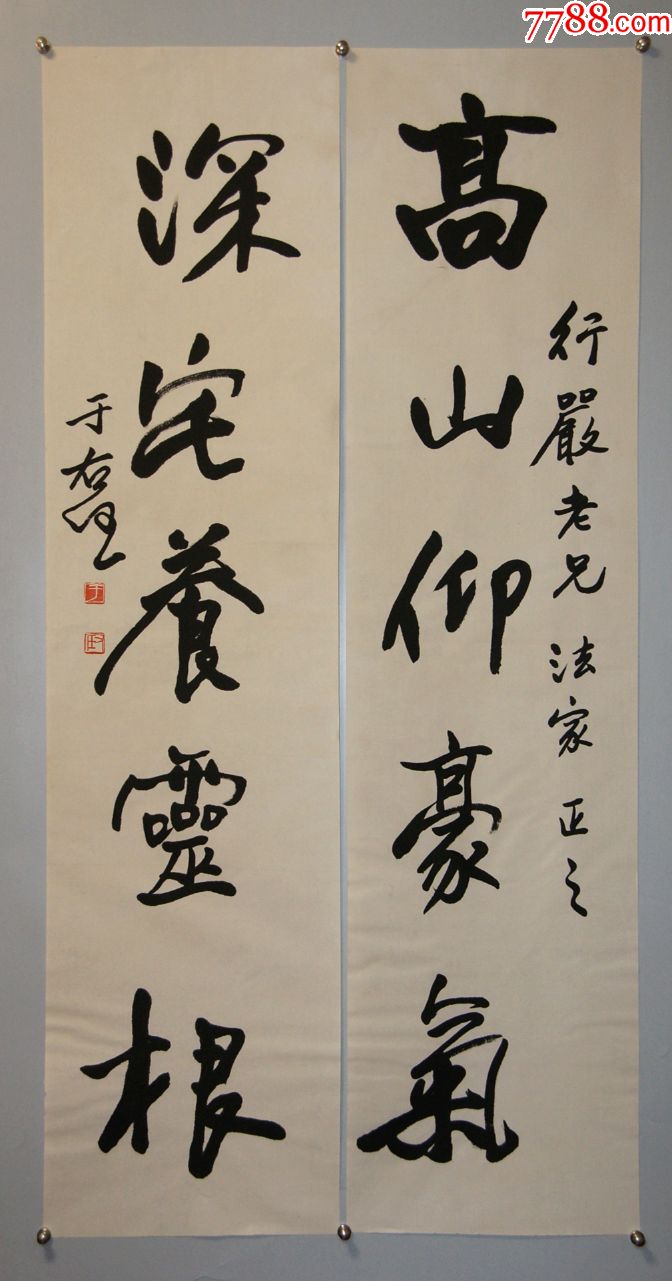 7788.com
高山仰豪氣
行嚴老兄 法家 正之
深宅養靈根
于右任